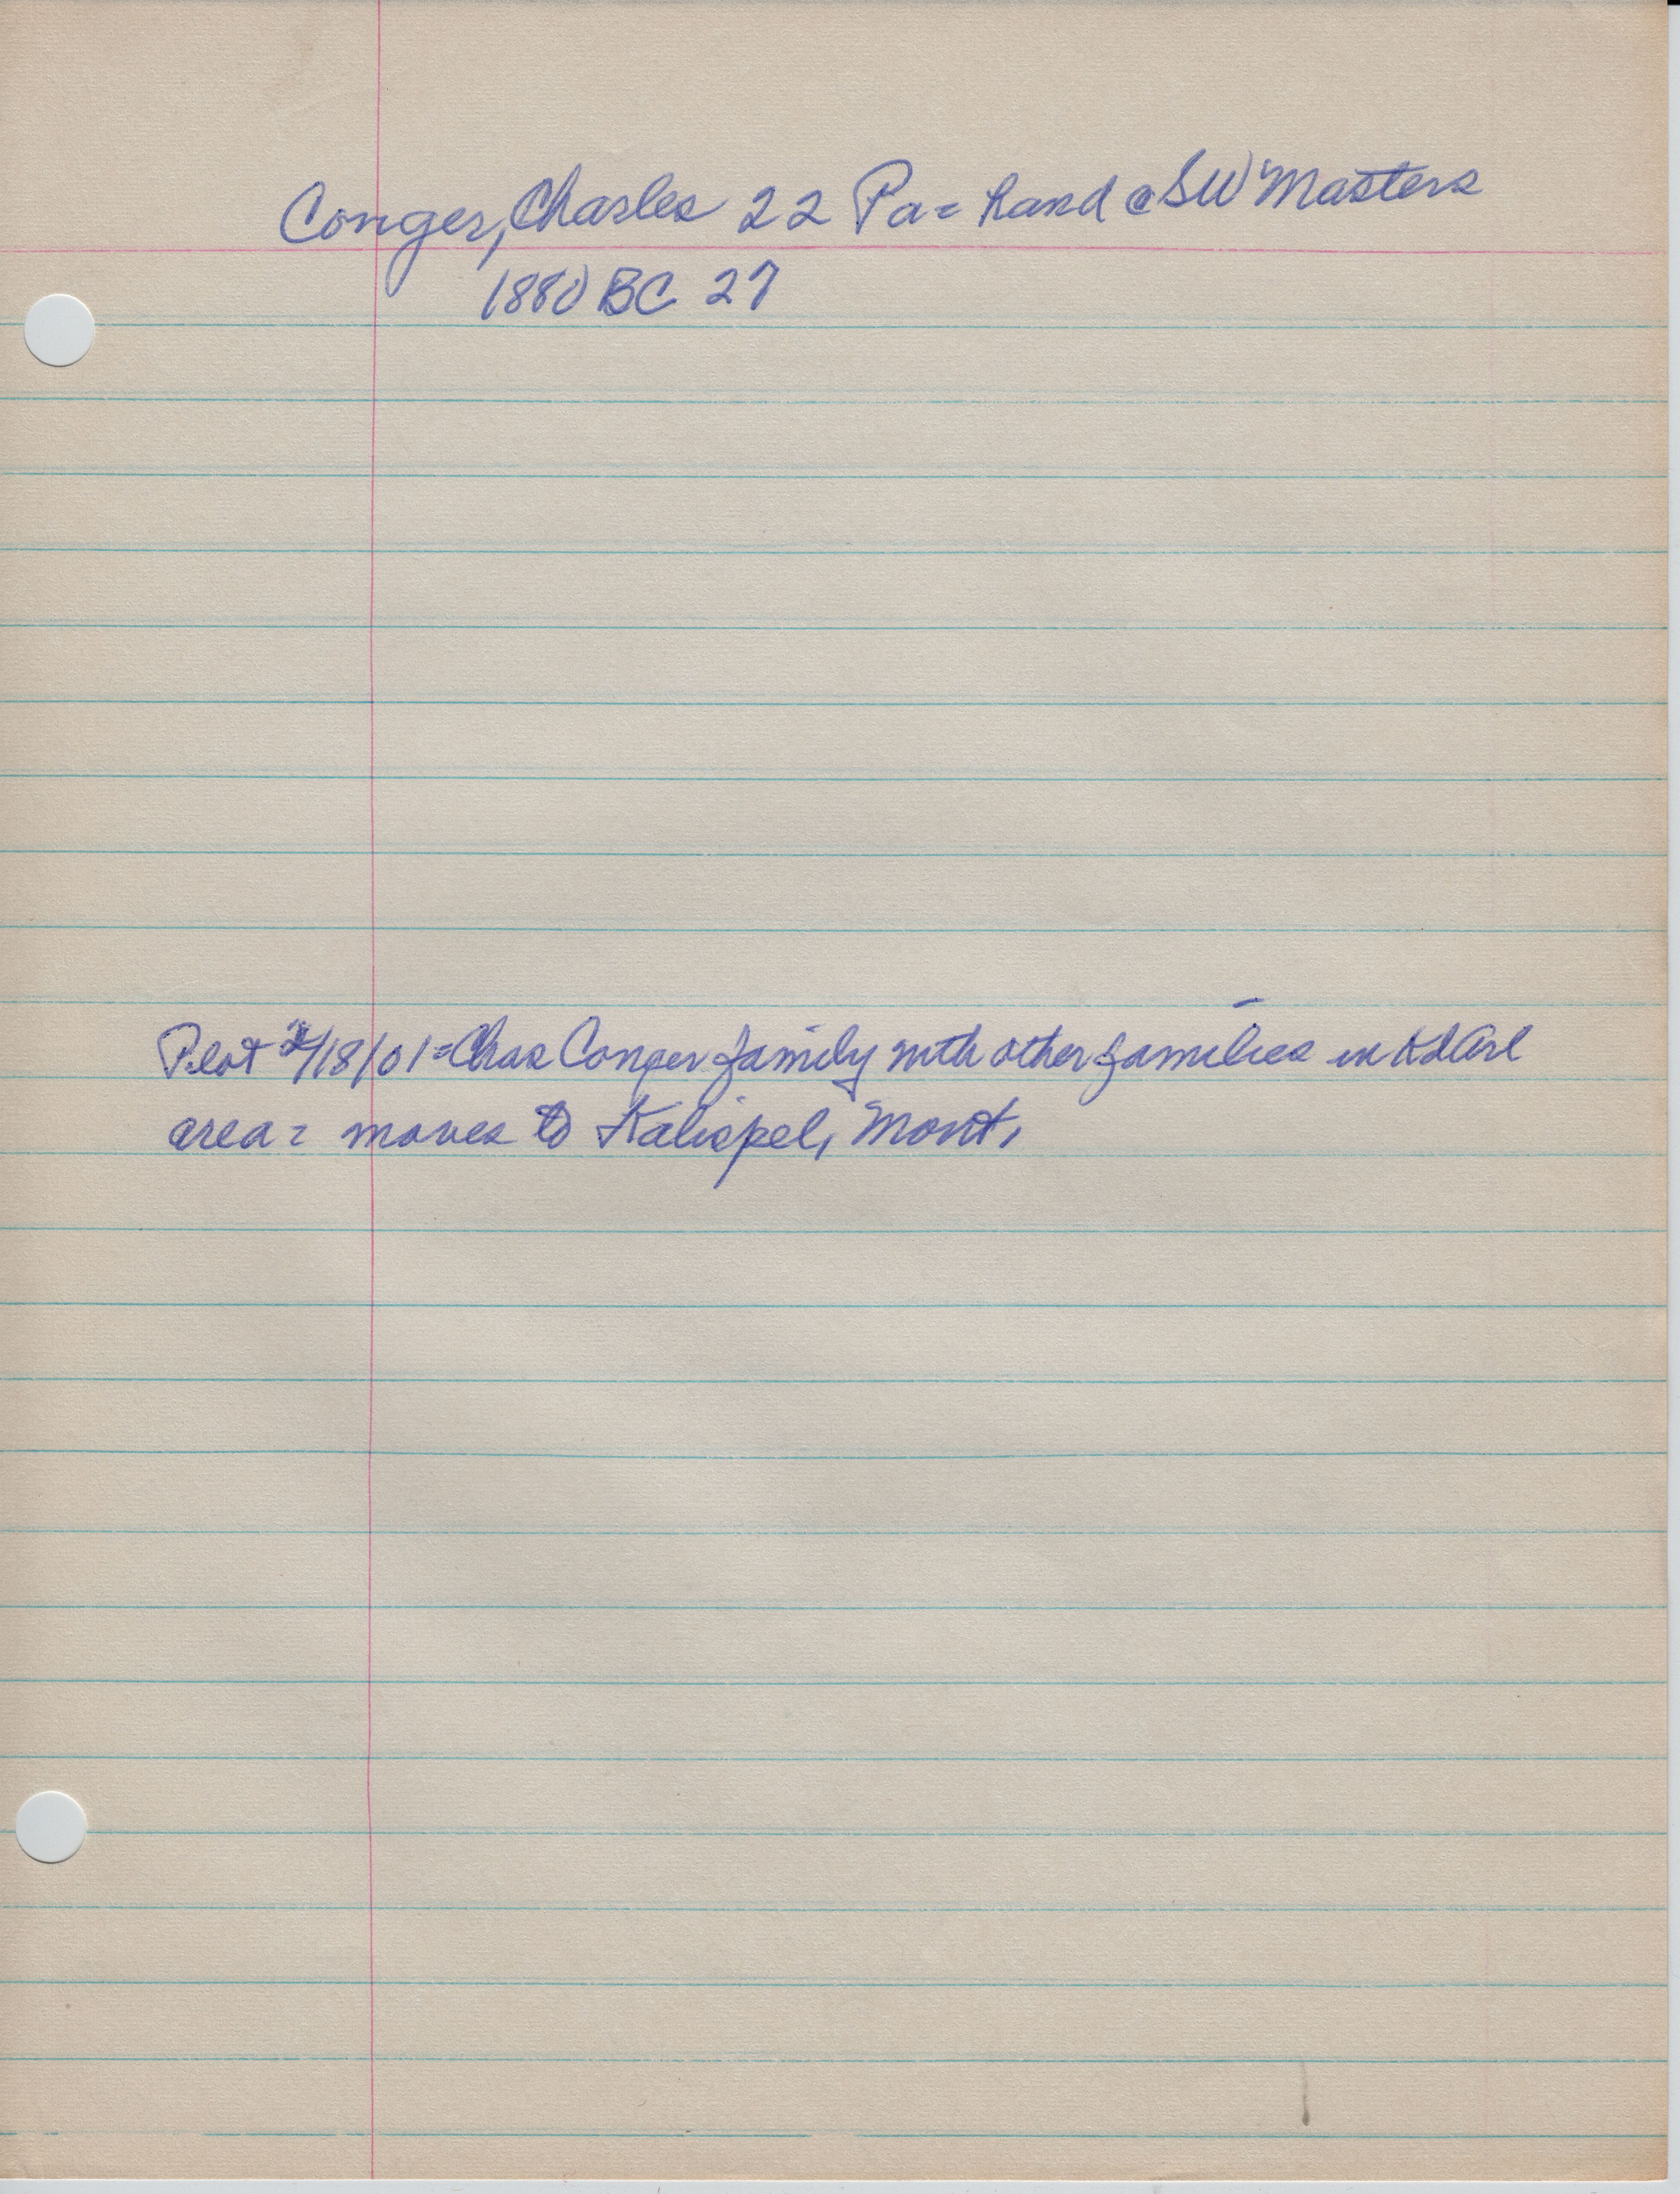 Conger, Charles 22 Pa = hand @ SW Masters
1880 BC 27
Pilot /18/01 = Chas Conger family with other families in
area = moves to Kalispel, Mont.